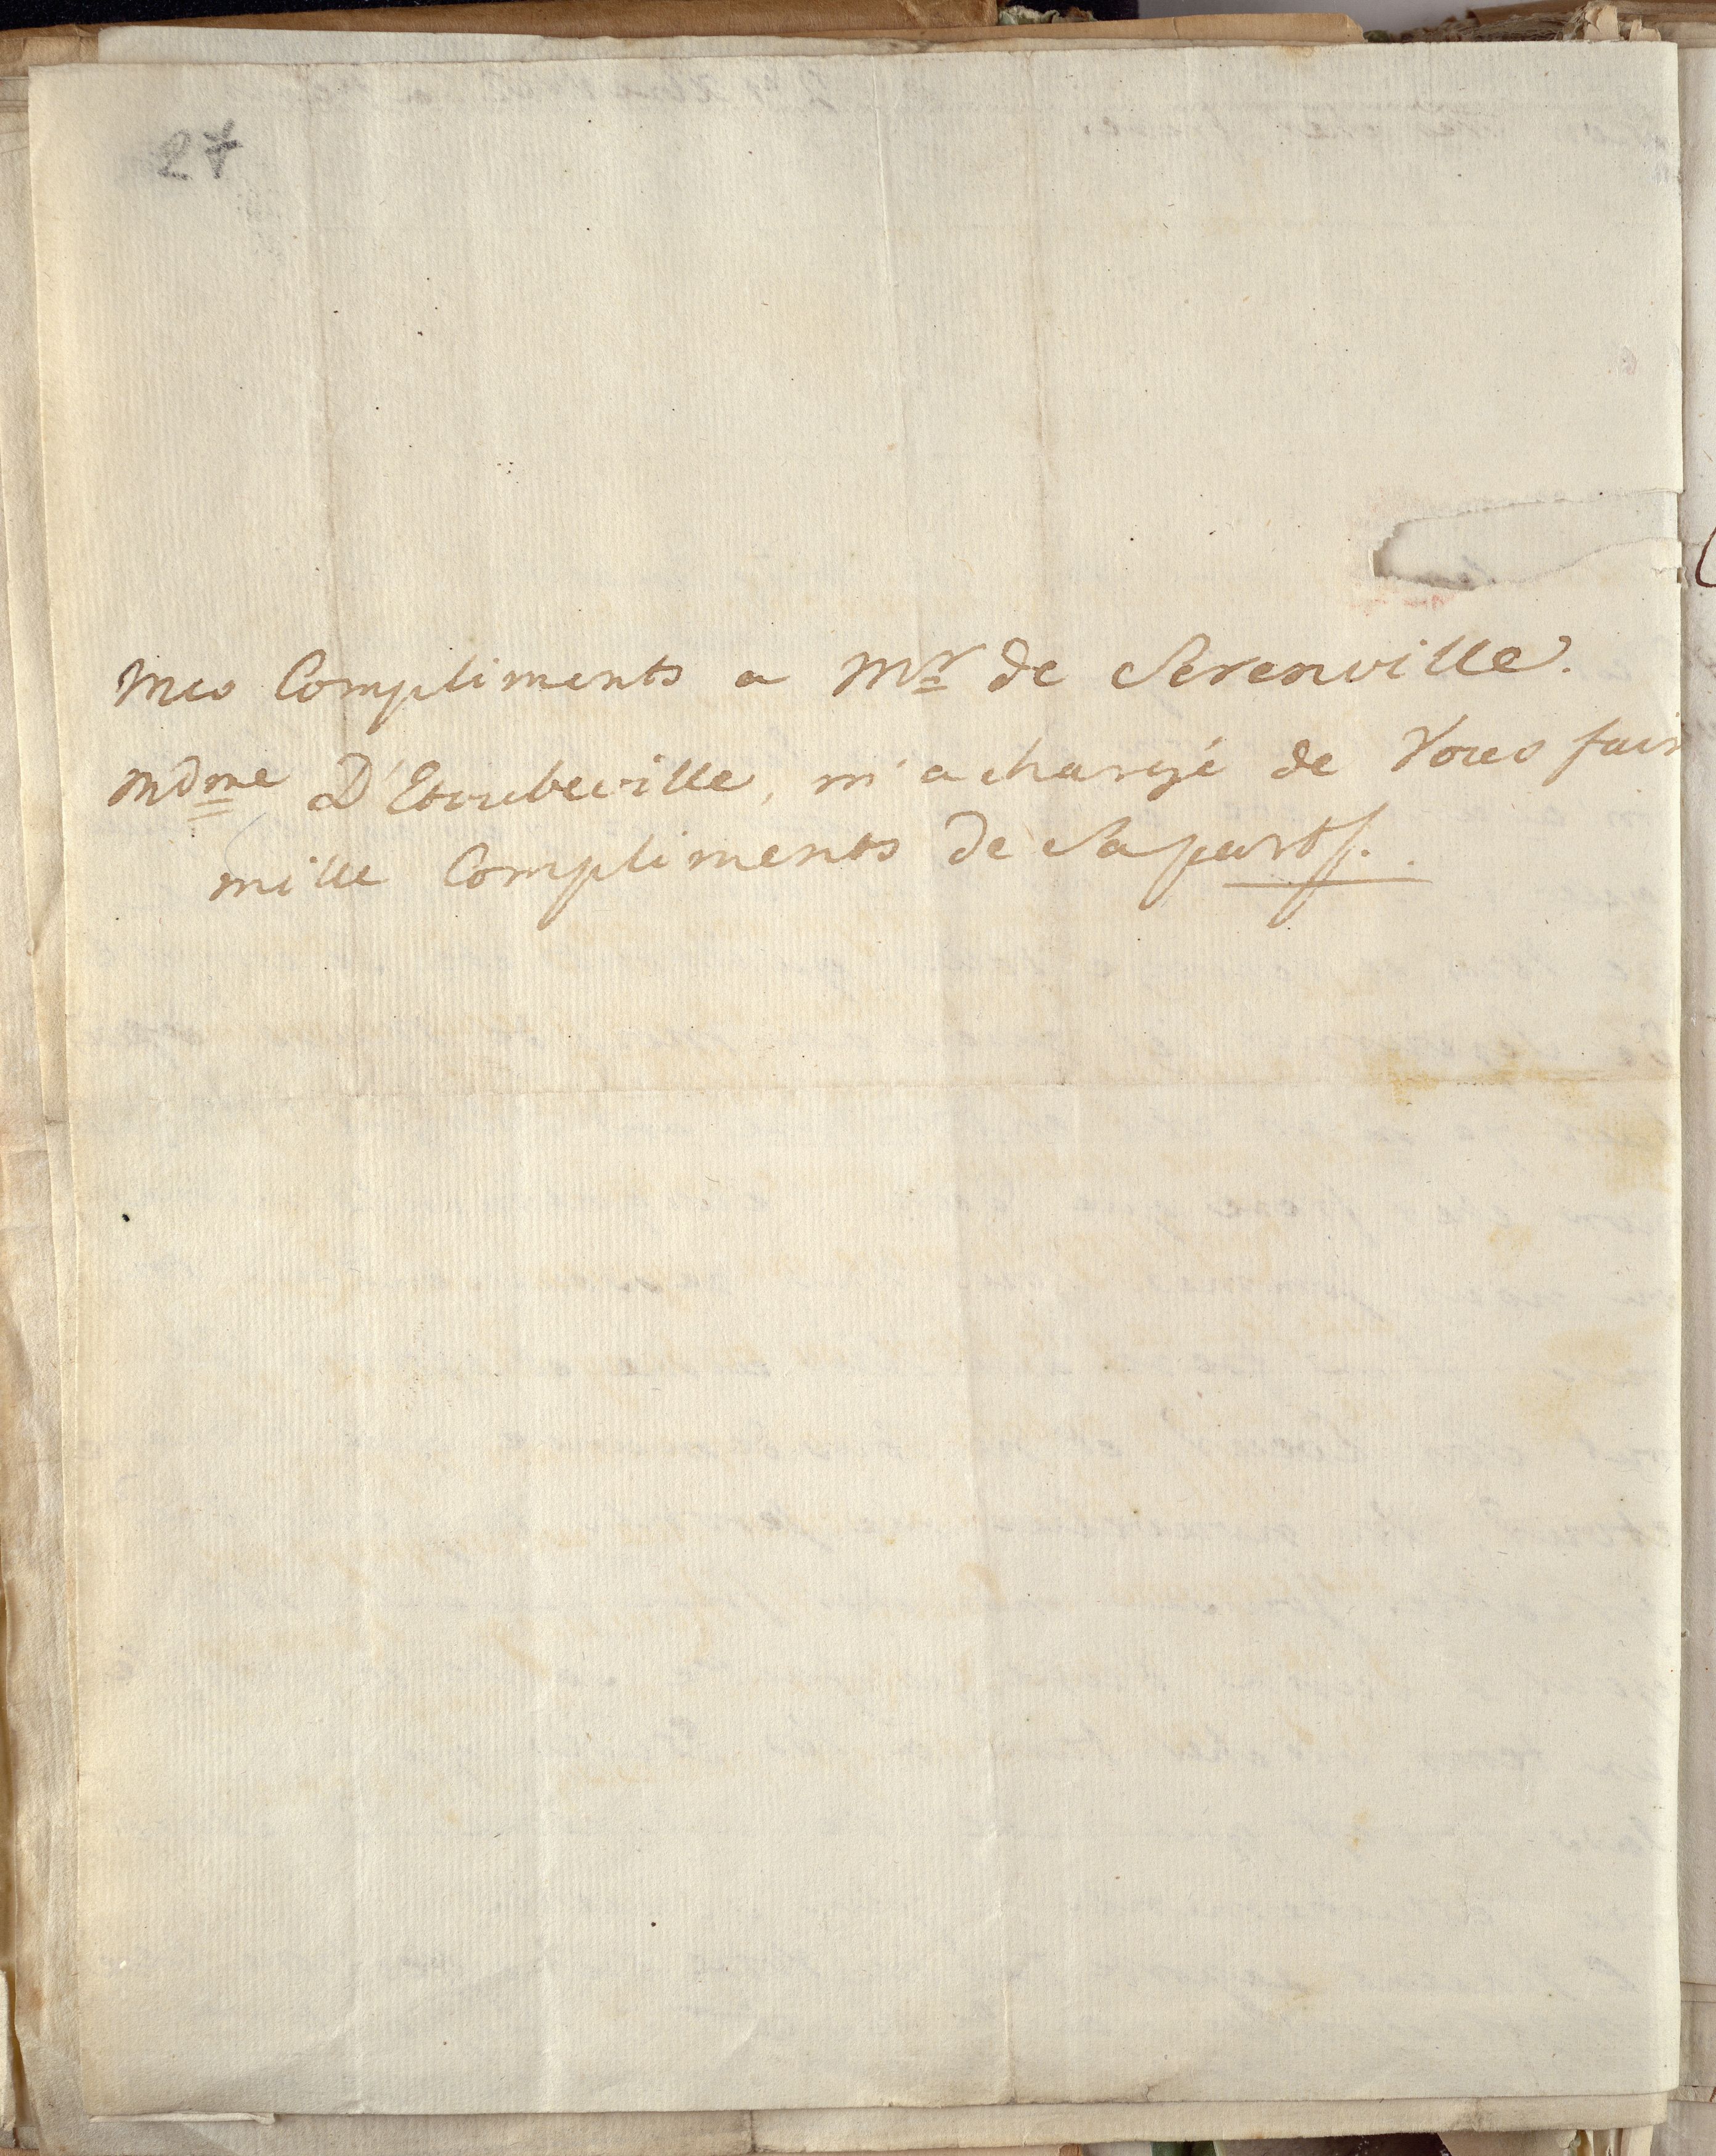 27
Mes Compliments a Mr de Serenville.
Mdme D'Etoubeville, m'a chargé de Vous fair
mille Compliments de Sa part.